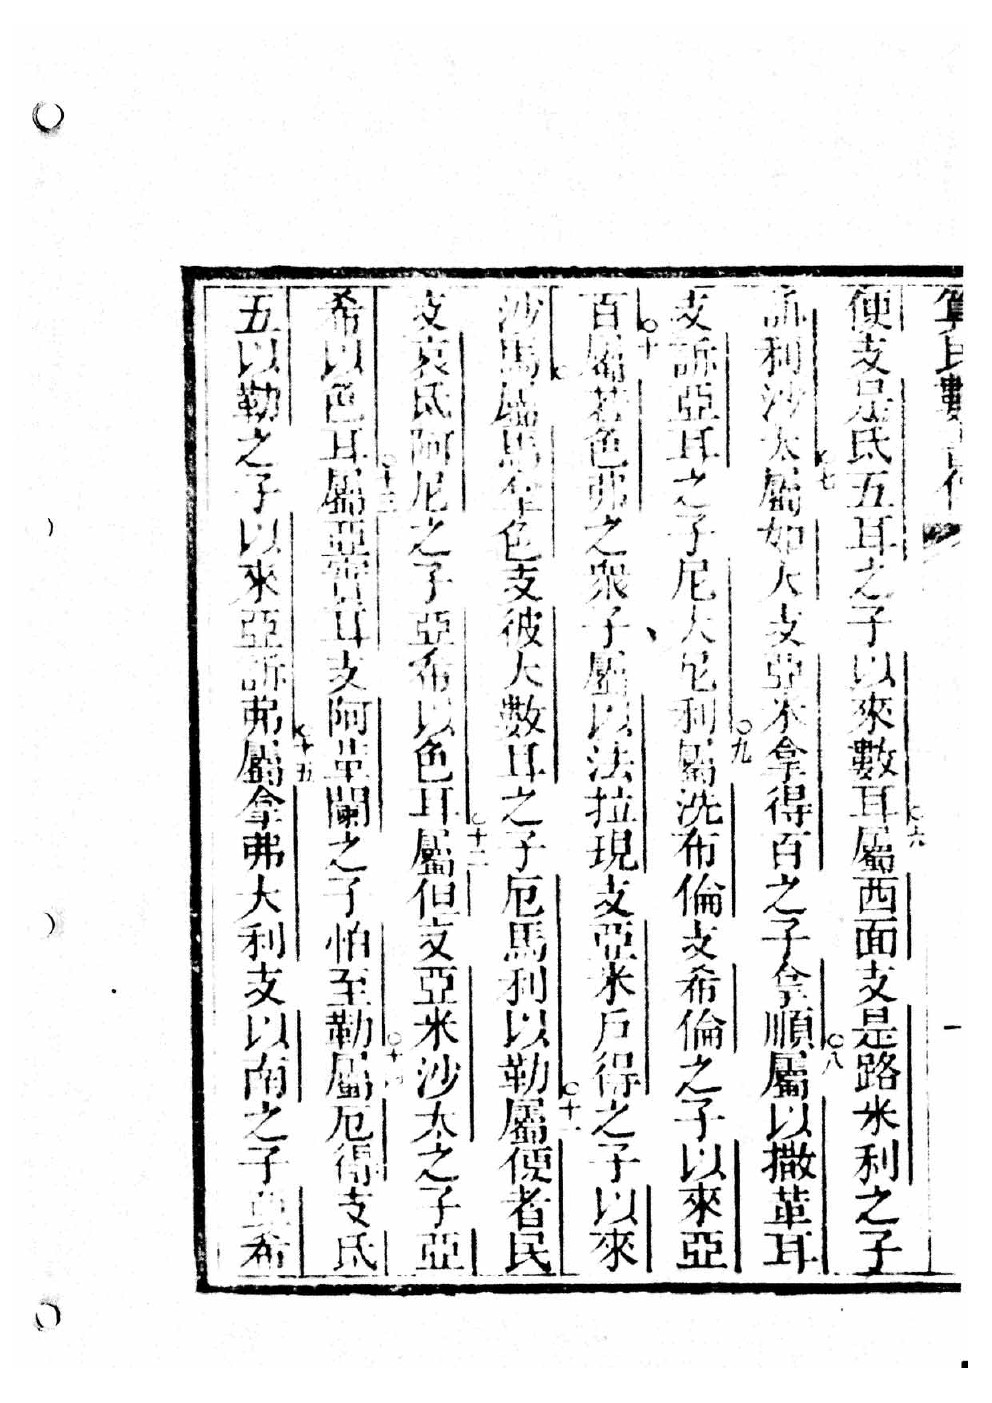 算民數書傳
使支是氏五耳之子以來數耳○六屬西面支是路米利之子
訴利沙太○七屬如大支亞米拿得百之子拿順○八屬以撒革耳
支訴亞耳之子尼大尼利○九屬洗布倫支希倫之子以來亞
百○十屬若色弗之衆子屬以法拉現支亞米戶得之子以來
沙馬屬馬拿色支彼大數耳之子厄馬利以勒○十一屬便者民
支哀氐阿尼之子亞布以色耳○十二屬但支亞米沙太之子亞
希以色耳○十三屬亞實耳支阿革闌之子怕至勒○十四屬厄得支氐
五以勒之子以來亞訴弗○十五屬拿弗大利支以南之子亞希
一